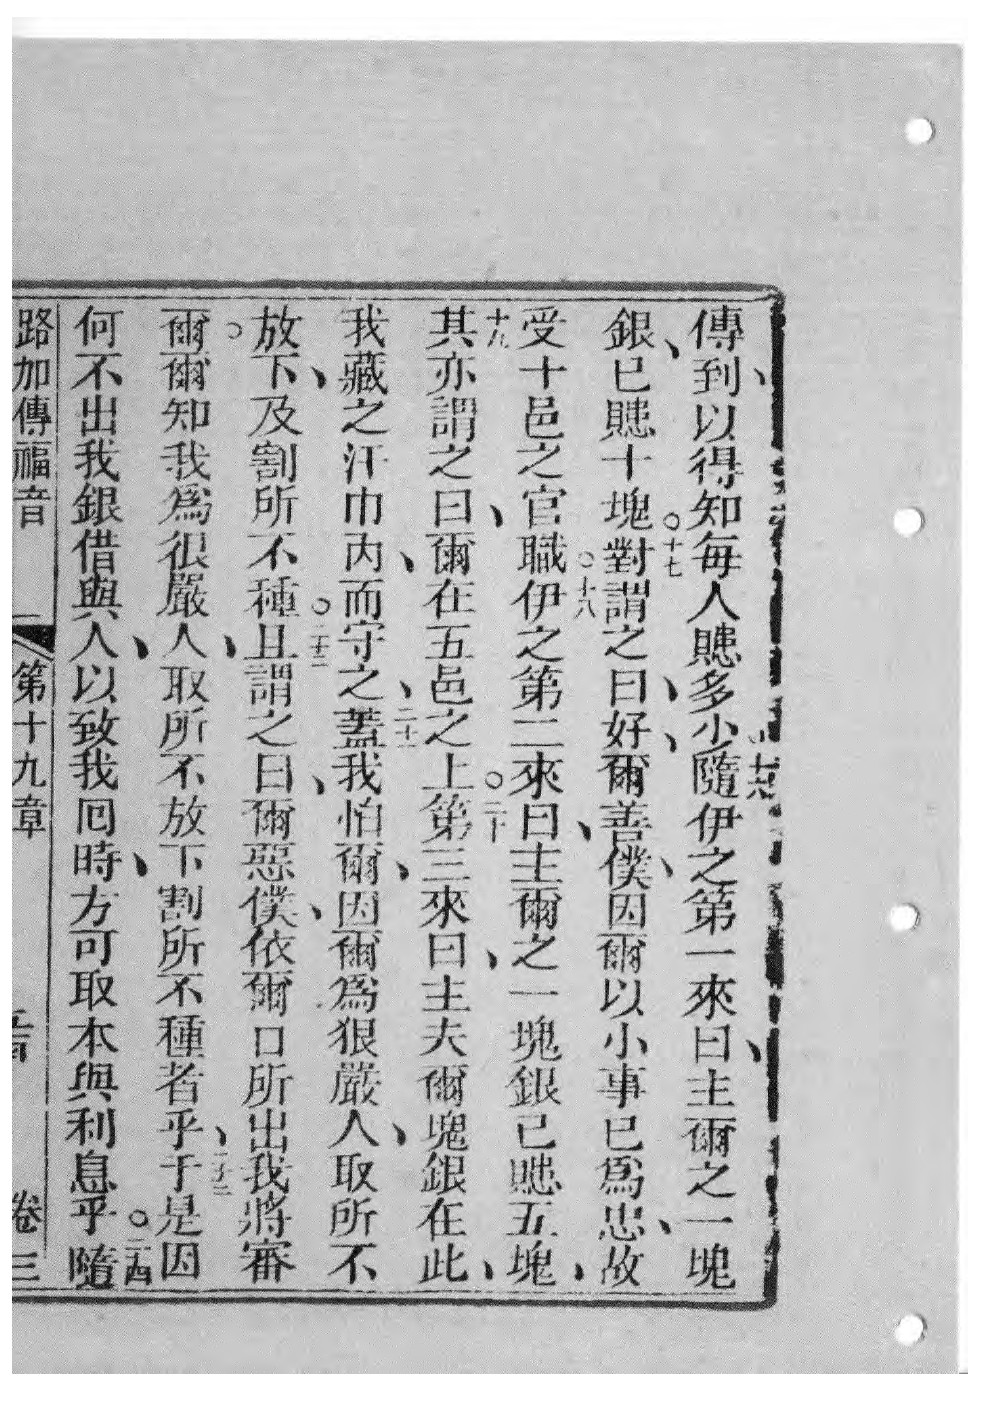 傳到、以得知每人賺多小、十六隨伊之第一來曰、主爾之一塊
銀、已賺十塊。十七對謂之曰、好、爾善僕、因爾以小事已爲忠、故
受十邑之官職。十八伊之第二來曰、主爾之一塊銀已賺五塊、
十九其亦謂之曰、爾在五邑之上。二十第三來曰、主夫爾塊銀在此、
我藏之汗巾內、而守之、二十一蓋我怕爾、因爾爲狠嚴人、取所不
放下、及割所不種。二十二且謂之曰、爾惡僕、依爾口所出我將審
爾。爾知我爲很嚴人、取所不放下割所不種者乎、二十三于是因
何不出我銀借與人、以致我回時、方可取本與利息乎。二十四隨
路加傳福音 第十九章 卷三